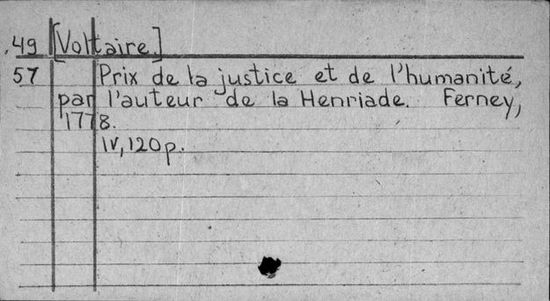 .49 [Voltaire.]
57 Prix de la justice et de l'humanité,
par l'auteur de la Henriade. Ferney,
1778.
IV, 120 p.